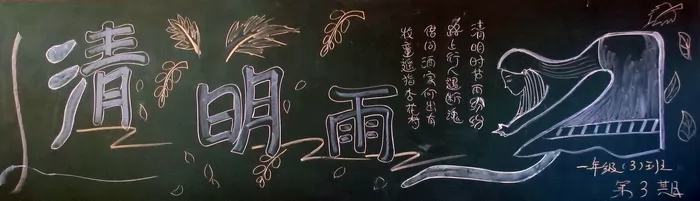 清明雨
清明时节雨纷纷
路上行人遇断魂
借问酒家何出有
牧童遥指杏花村
一年级(3)班
第3期